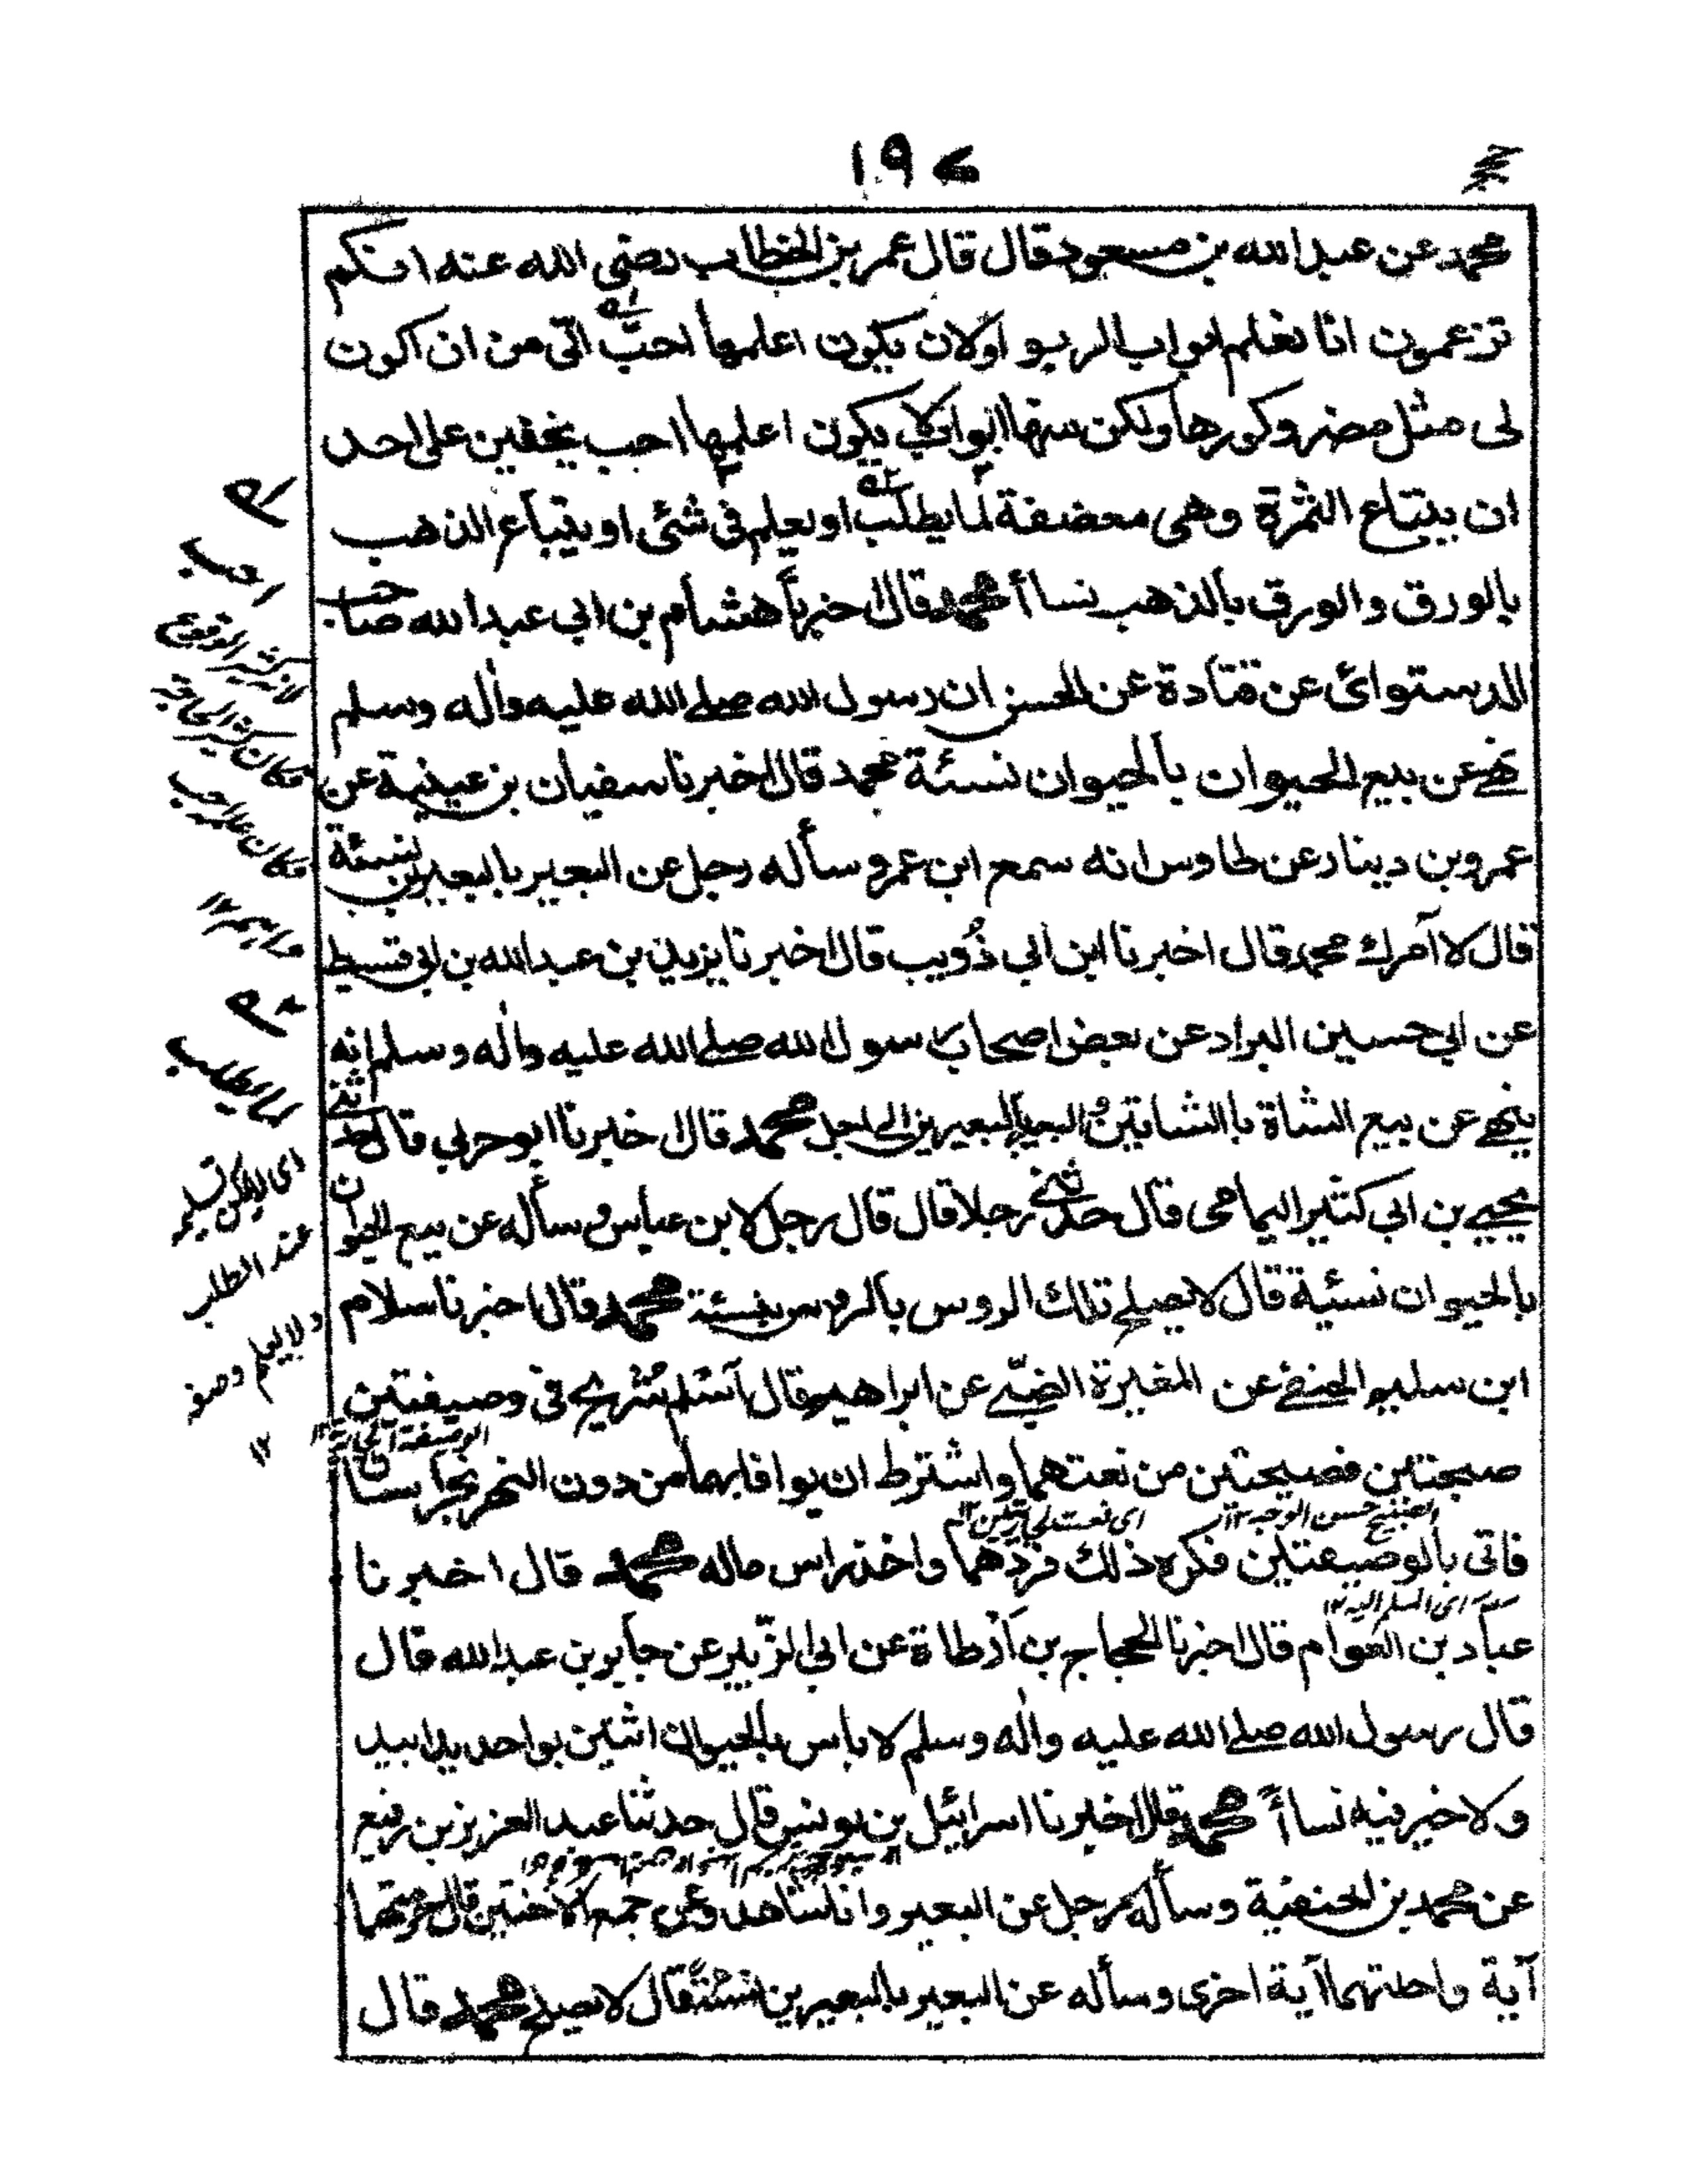 ١٩٤
محمد عن عبد الله بن مسعود قال قال عمر بن الخطاب رضي الله عنه انكم
تزعمون انا نعلم ابواب الربو اولان يكون اعلمها احبّ الىّ من ان اكون
لى مثل مضر وكورها ولكن سنها ابواب لا يكون اعلمها احب يخفين على احد
ان يبتاع الثمرة وهى معضفة لما يطلب او يعلم فى شئى او يبتاع الذهب
بالورق والورق بالذهب نساأ محمد قال اخبرنا هشام بن ابي عبد الله صاحب
الدستوائ عن قتادة عن الحسن ان رسول الله صلے الله عليه واله وسلم
نهے عن بيع الحيوان بالحيوان نسئة محمد قال اخبرنا سفيان بن عيينة عن
عمرو بن دينار عن طاوس انه سمع ابن عمر وسأله رجل عن البعير بالبعيرين نسئة
قال لا آمرك محمد قال اخبرنا ابن ابي ذُويب قال اخبرنا يزيد بن عبد الله بن ابي قسيط
عن ابي حسين البراد عن بعض اصحاب رسول الله صلے الله عليه واله وسلم انه
ينهے عن بيع الشاة بالشاتين والبعير بالبعيرين الى اجل محمد قال اخبرنا ابو حربي قال حدثنے
يحيے بن ابي كثير اليمامى قال حدثنے رجلا قال قال رجل لابن عباس وسأله عن بيع الحيوان
بالحيوان نسئية قال لا يصلح تلك الروس بالروس نسئة محمد قال اخبرنا سلام
ابن سليم الحنفے عن المغيرة الضبّے عن ابراهيم قال آسلم شريح فى وصيفتين
الوصيفة الجارية ١٢
صبيحتين فصيحتين من نعتهما واشترط ان يوافا بهما من دون النهر نجرا بسا
الصبيح حسن الوجه ١٢
فاتى بالوصيفتين فكره ذلك فردهما واخذ راس ماله محمد قال اخبرنا
اى المسلم اليه ١٢
عباد بن العوام قال اخبرنا الحجاج بن آرطاة عن ابي الزّبير عن جابر بن عبد الله قال
قال رسول الله صلے الله عليه واله وسلم لا باس بالحيوان اثنين بواحد يدا بيد
ولا خير فيه نساأ محمد قال اخبرنا اسرائيل بن يونس قال حدثنا عبد العزيز بن رفيع
عن محمد بن الحنفية وسأله رجل عن البعير وانا شاهد وعن جمع الاختين قال حرمتهما
آية واحلتهما آية اخرى وسأله عن البعير بالبعيرين نسئة قال لا يصلح محمد قال
احب
لانه كثير الوقوع
فكان
ما يهم ١٢
لما يطلب
عند الطلب
ولا يعلم وصف
١٢